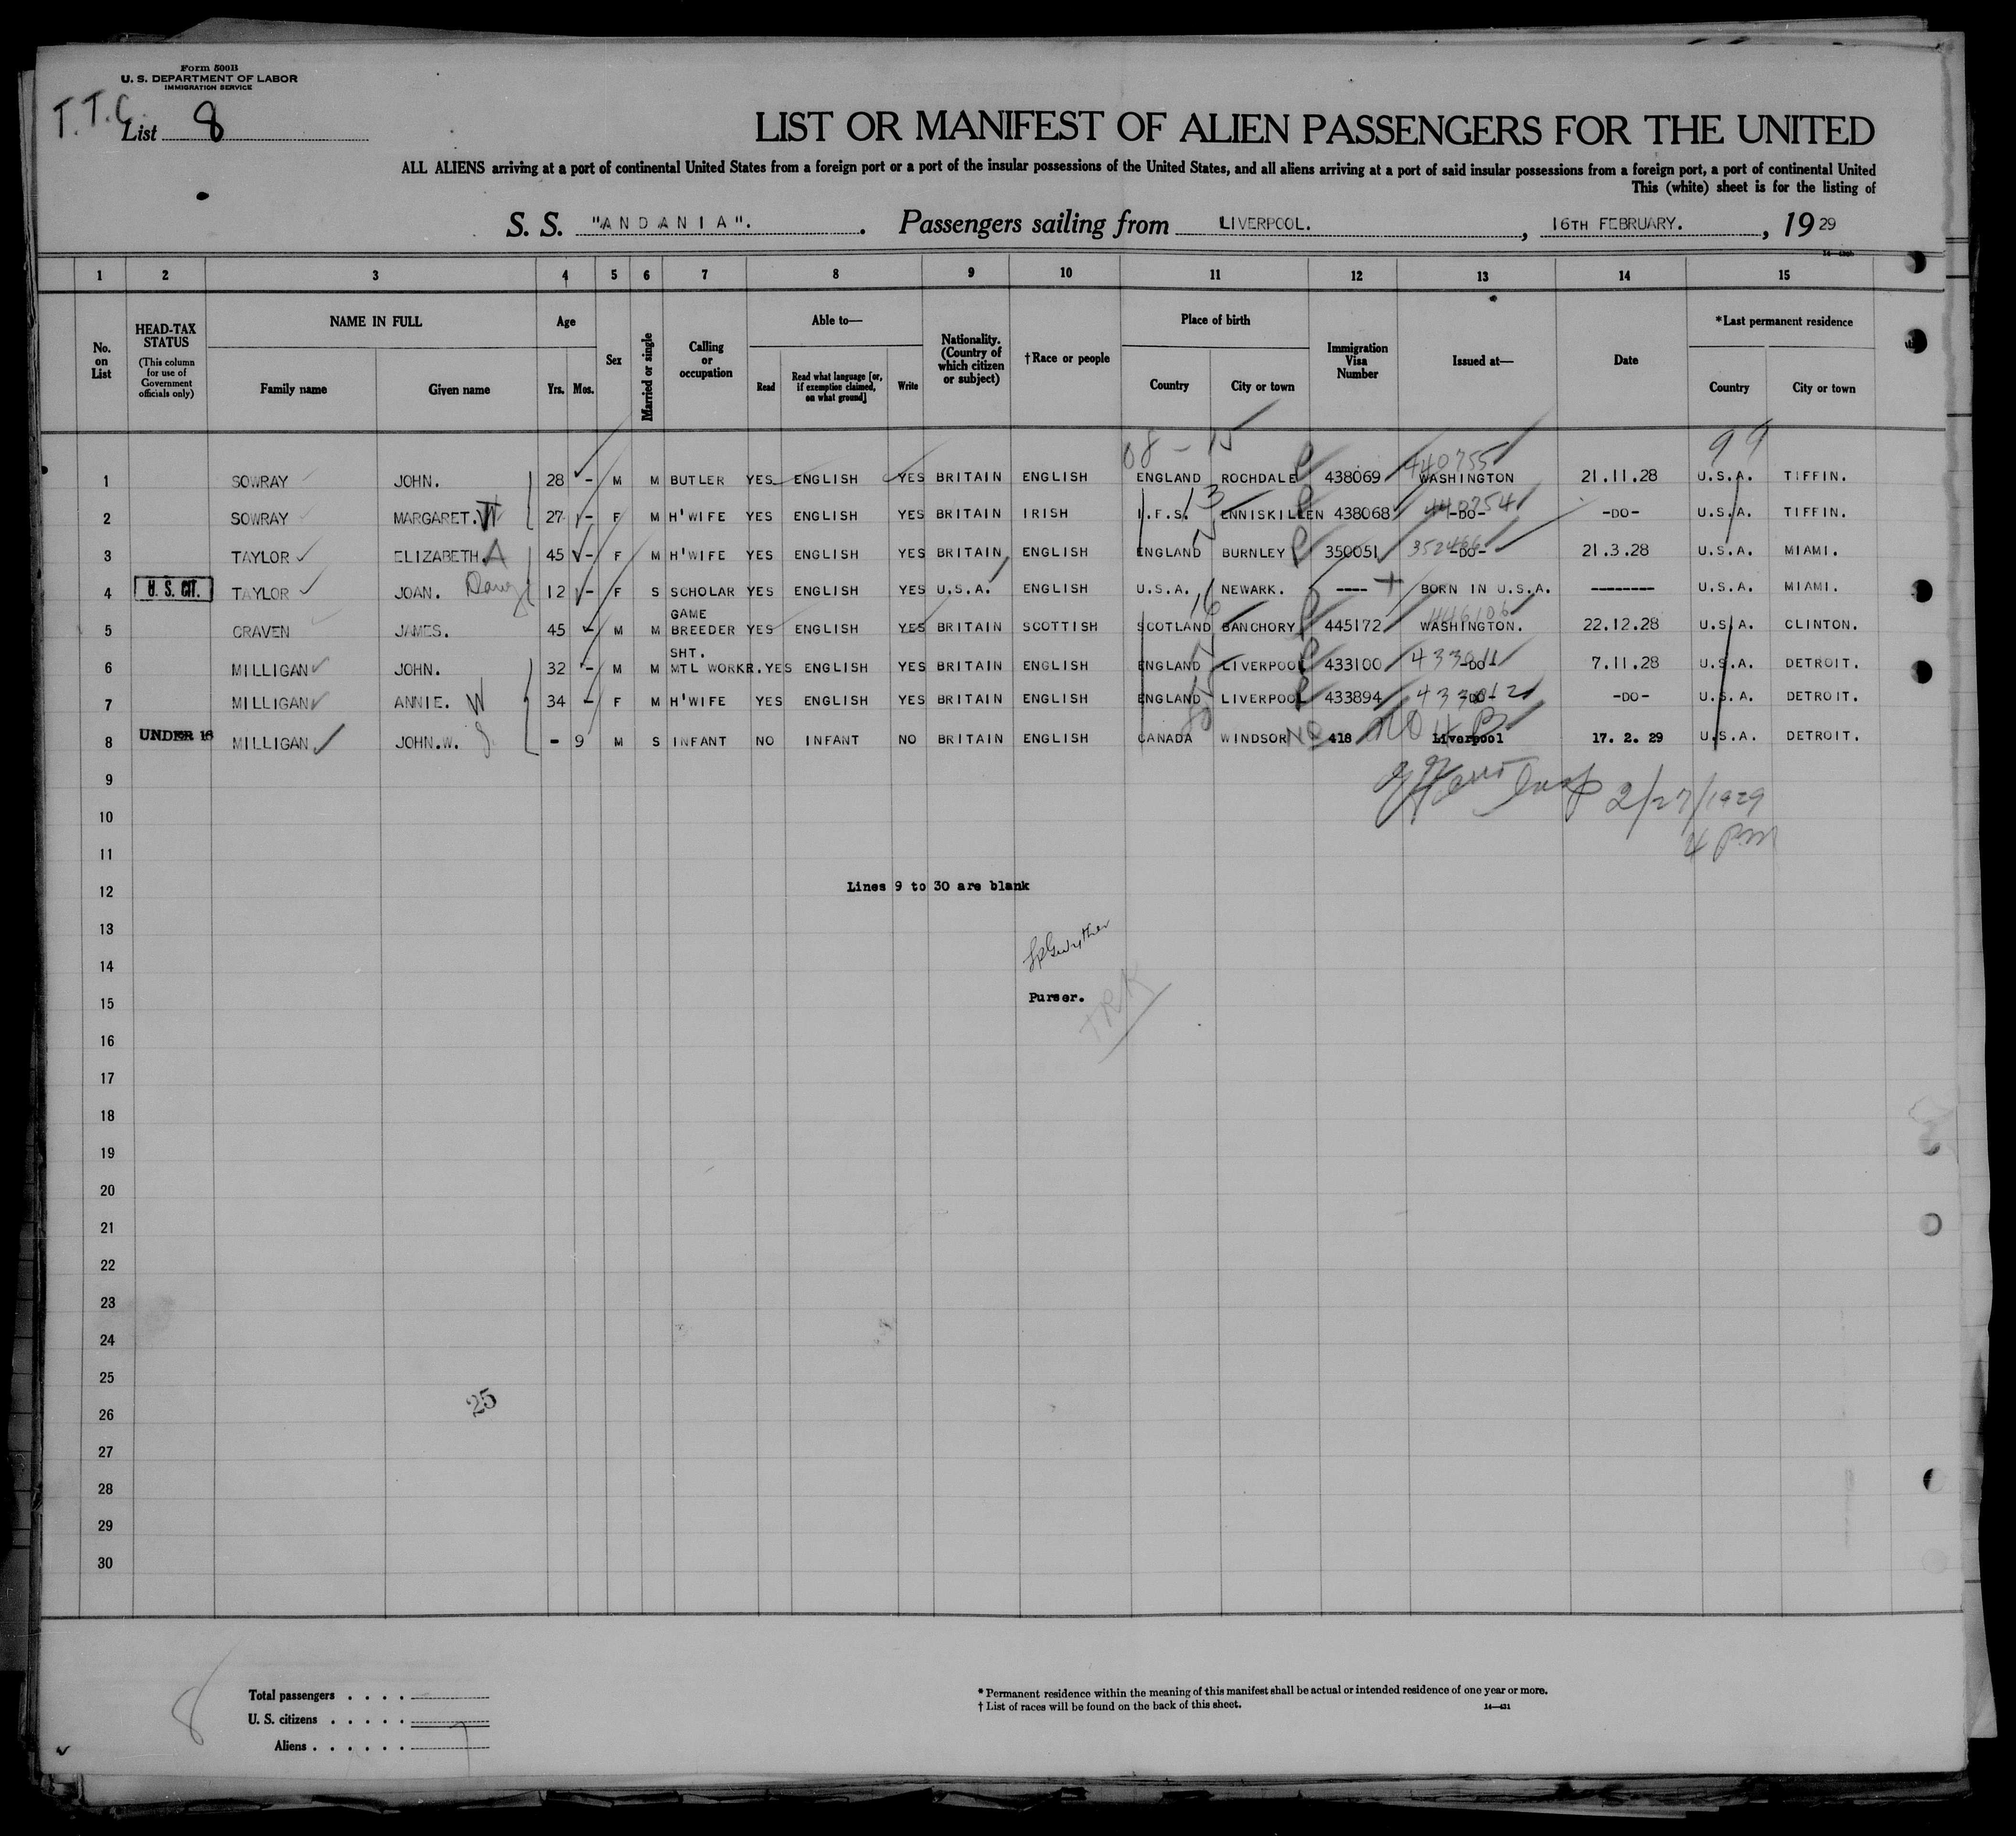 Form 500B
U. S. DEPARTMENT OF LABOR
IMMIGRATION SERVICE
T.T.C.
List 8
LIST OR MANIFEST OF ALIEN PASSENGERS FOR THE UNITED
ALL ALIENS arriving at a port of continental United States from a foreign port or a port of the insular possessions of the United States, and all aliens arriving at a port of said insular possessions from a foreign port, a port of continental United
This (white) sheet is for the listing of
S. S. "ANDANIA". Passengers sailing from LIVERPOOL. , 16TH FEBRUARY. , 1929
1 2 3 4 5 6 7 8 9 10 11 12 13 14 15
No. on List
HEAD-TAX STATUS (This column for use of Government officials only)
NAME IN FULL
Family name Given name
Age
Yrs. Mos.
Sex
Married or single
Calling or occupation
Able to—
Read
Read what language [or, if exemption claimed, on what ground]
Write
Nationality. (Country of which citizen or subject)
†Race or people
Place of birth
Country City or town
Immigration Visa Number
Issued at—
Date
*Last permanent residence
Country City or town
08-15 99
440755
1 SOWRAY JOHN. 28 - M M BUTLER YES ENGLISH YES BRITAIN ENGLISH ENGLAND ROCHDALE 438069 WASHINGTON 21.11.28 U.S.A. TIFFIN.
13 440754
2 SOWRAY MARGARET. W 27 - F M H'WIFE YES ENGLISH YES BRITAIN IRISH I.F.S. ENNISKILLEN 438068 -DO- -DO- U.S.A. TIFFIN.
3 TAYLOR ELIZABETH. A 45 - F M H'WIFE YES ENGLISH YES BRITAIN ENGLISH ENGLAND BURNLEY 350051 -DO- 21.3.28 U.S.A. MIAMI.
4 U. S. CIT. TAYLOR JOAN. Daug 12 - F S SCHOLAR YES ENGLISH YES U.S.A. ENGLISH U.S.A. NEWARK. ---- BORN IN U.S.A. -------- U.S.A. MIAMI.
16 446106
5 CRAVEN JAMES. 45 - M M GAME BREEDER YES ENGLISH YES BRITAIN SCOTTISH SCOTLAND BANCHORY 445172 WASHINGTON. 22.12.28 U.S.A. CLINTON.
6 MILLIGAN JOHN. 32 - M M SHT. MTL WORKR. YES ENGLISH YES BRITAIN ENGLISH ENGLAND LIVERPOOL 433100 -DO- 7.11.28 U.S.A. DETROIT.
7 MILLIGAN ANNIE. W 34 - F M H'WIFE YES ENGLISH YES BRITAIN ENGLISH ENGLAND LIVERPOOL 433894 -DO- -DO- U.S.A. DETROIT.
8 UNDER 16 MILLIGAN JOHN.W. S - 9 M S INFANT NO INFANT NO BRITAIN ENGLISH CANADA WINDSOR NQ 418 Liverpool 17. 2. 29 U.S.A. DETROIT.
9
2/27/1929
10
4 pm
11
12 Lines 9 to 30 are blank
13
14
15 Purser.
TRK
16
17
18
19
20
21
22
23
24
25
25
26
27
28
29
30
8
Total passengers
U. S. citizens
Aliens
7
* Permanent residence within the meaning of this manifest shall be actual or intended residence of one year or more.
† List of races will be found on the back of this sheet.
14—421